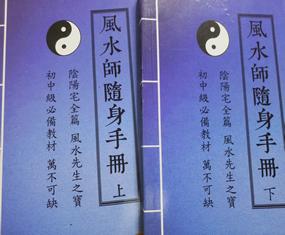 風水師隨身手冊 上
陰陽宅全篇 風水先生之寶
初中級必備教材 萬不可缺
風水師隨身手冊 下
陰陽宅全篇 風水先生之寶
初中級必備教材 萬不可缺